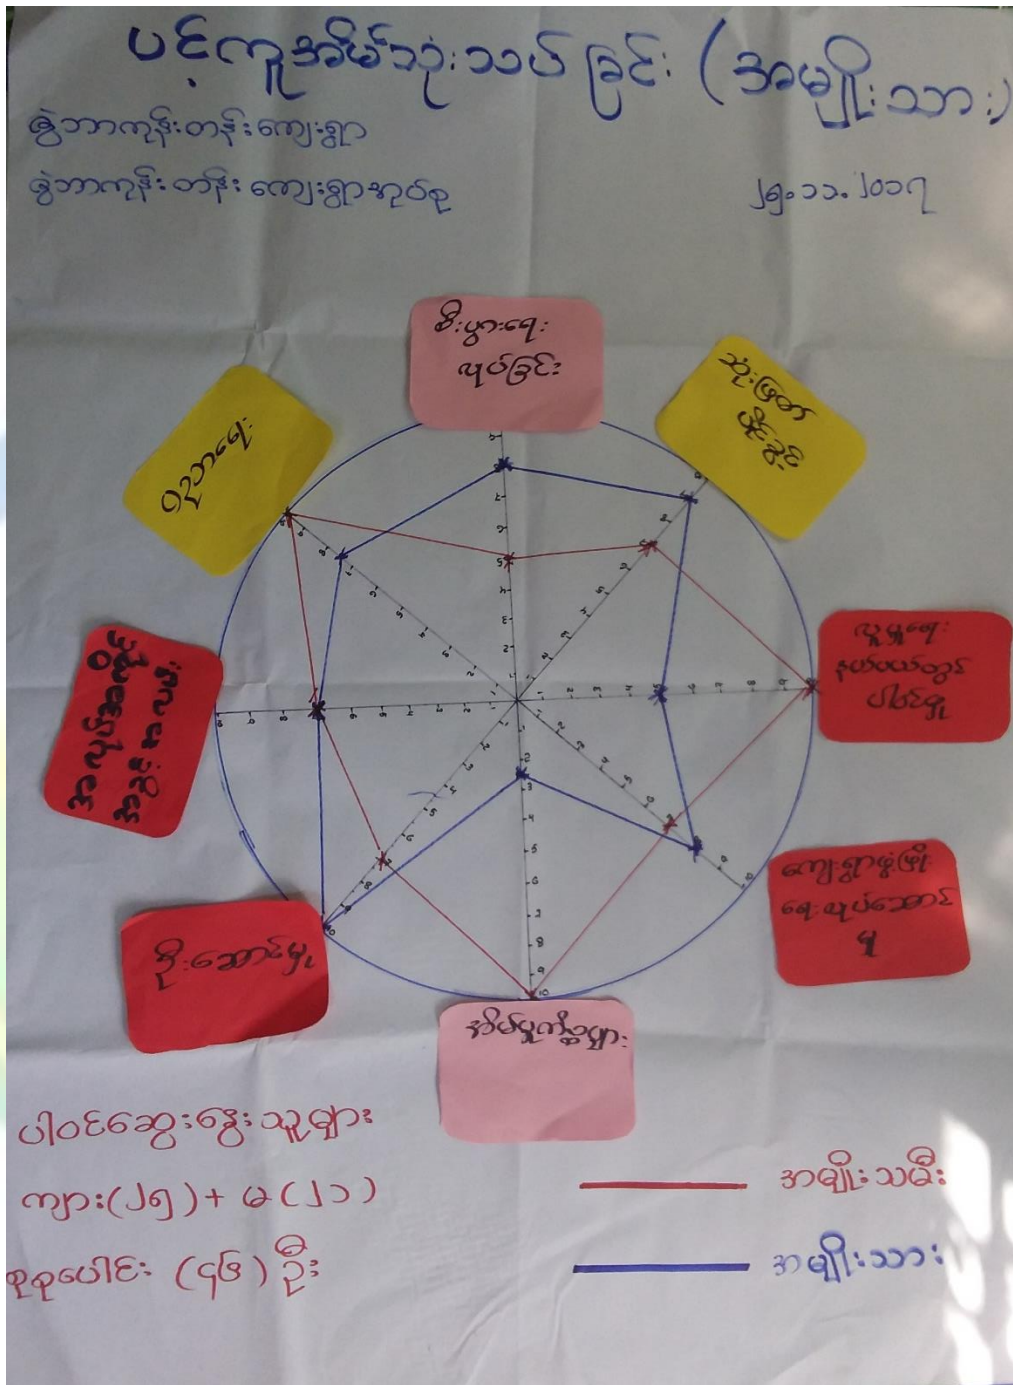 ပင့်ကူအိမ်သုံးသပ်ခြင်း (အမျိုးသား)
ဇွဲဘာကုန်းတန်းကျေးရွာ
ဇွဲဘာကုန်းတန်းကျေးရွာအုပ်စု
၂၅.၁၁.၂၀၁၇
စီးပွားရေး
လုပ်ခြင်း
ဆုံးဖြတ်
ပိုင်ခွင့်
ပညာရေး
လူမှုရေး
နယ်ပယ်တွင်
ပါဝင်မှု
ကျေးရွာဖွံ့ဖြိုး
ရေးလုပ်ဆောင်
မှု
ဦးဆောင်မှု
အိမ်မှုကိစ္စများ
ပါဝင်ဆွေးနွေးသူများ
ကျား(၂၅)+ မ(၂၁)
စုစုပေါင်း (၄၆) ဦး
အမျိုးသမီး
အမျိုးသား